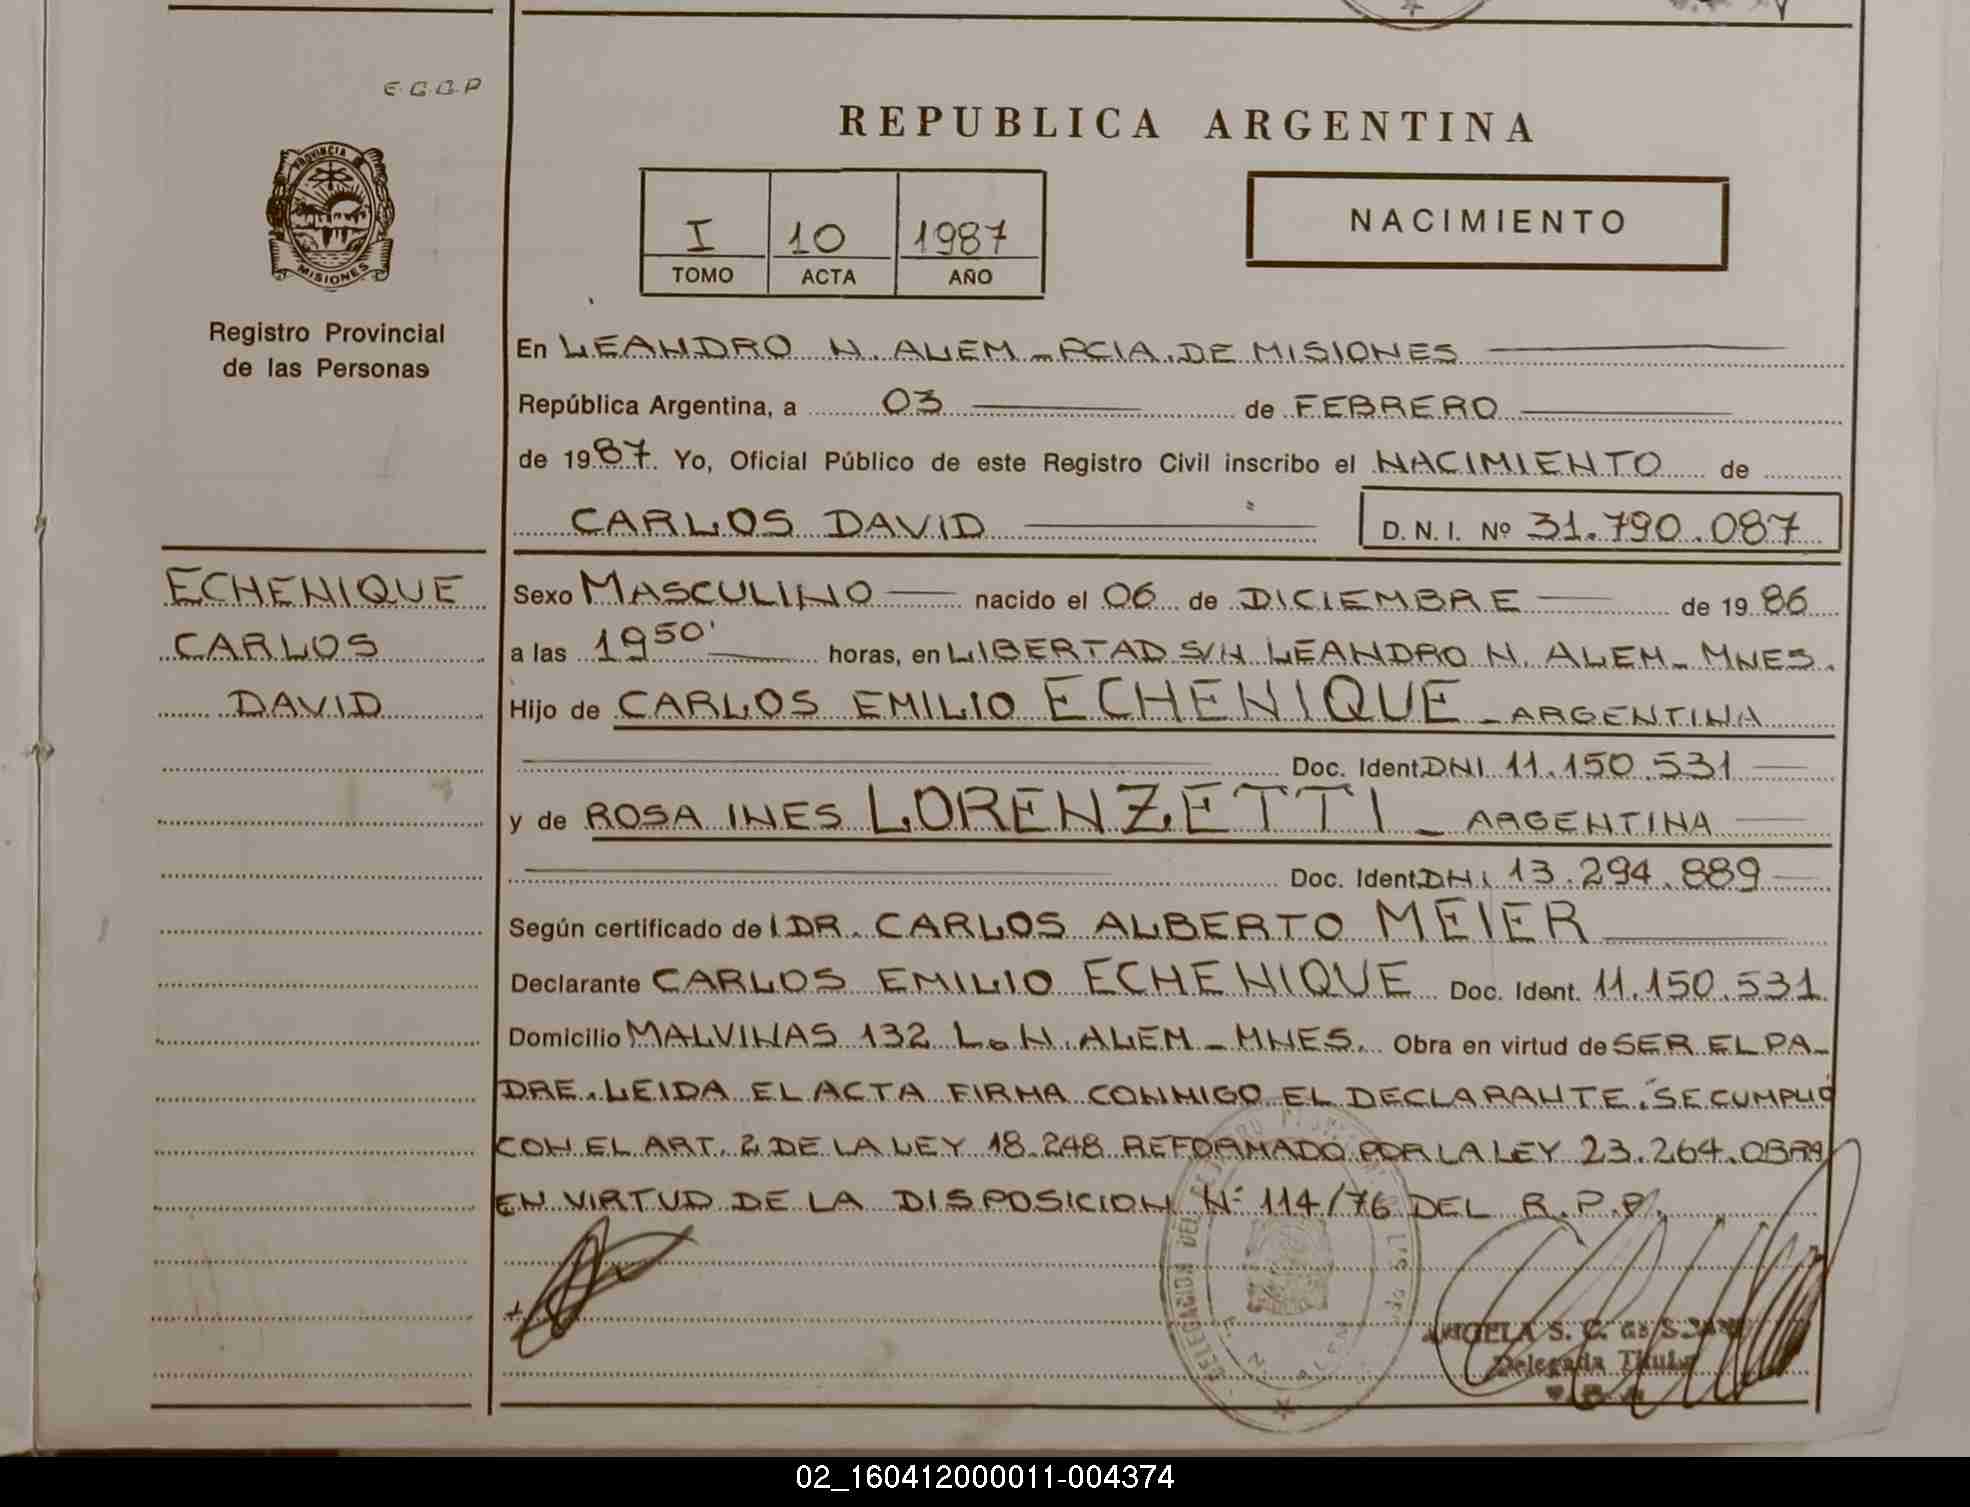 E.G.G.P
REPUBLICA ARGENTINA
PROVINCIA
MISIONES
Registro Provincial
de las Personas
I 10 1987
TOMO ACTA AÑO
NACIMIENTO
En LEANDRO N. ALEM - PCIA. DE MISIONES
República Argentina, a 03 de FEBRERO
de 1987. Yo, Oficial Público de este Registro Civil inscribo el NACIMIENTO de
CARLOS DAVID D. N. I. Nº 31.790.087
ECHENIQUE
CARLOS
DAVID
Sexo MASCULINO nacido el 06 de DICIEMBRE de 1986
a las 19 50' horas, en LIBERTAD S/N LEANDRO N. ALEM - MNES.
Hijo de CARLOS EMILIO ECHENIQUE - ARGENTINA
Doc. Ident. DNI 11.150.531
y de ROSA INES LORENZETTI - ARGENTINA
Doc. Ident. DNI 13.294.889
Según certificado de l DR. CARLOS ALBERTO MEIER
Declarante CARLOS EMILIO ECHENIQUE Doc. Ident. 11.150.531
Domicilio MALVINAS 132 L. N. ALEM - MNES. Obra en virtud de SER EL PA-
DRE. LEIDA EL ACTA FIRMA CONMIGO EL DECLARANTE. SE CUMPLIÓ
CON EL ART. 2 DE LA LEY 18.248 REFORMADO POR LA LEY 23.264. OBRA
EN VIRTUD DE LA DISPOSICION Nº 114/76 DEL R.P.P.
DELEGACION DEL
L. N. ALEM
ANGELA S. C. de
Delegada Titular
02_160412000011-004374